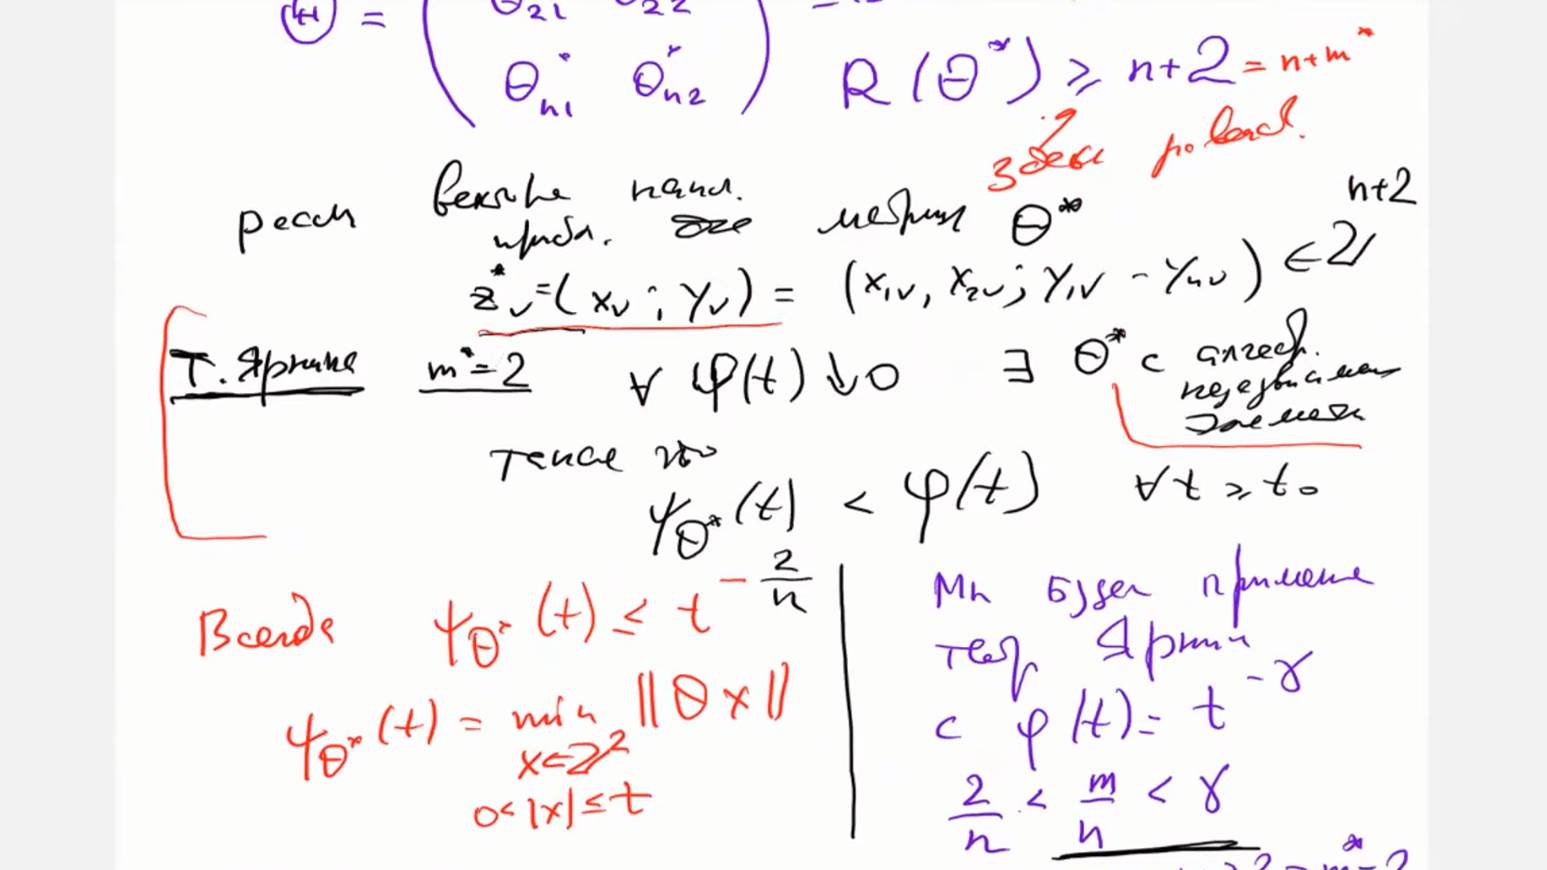 Θ = ( θ₂₁ θ₂₂
θ*ₙ₁ θ*ₙ₂ ) R(Θ*) ≥ n+2 = n+m*
здесь равенств.
рассм векторы наил. матрицы Θ*
прибл.
z*ᵥ = (xᵥ; yᵥ) = (x₁ᵥ, x₂ᵥ; y₁ᵥ - yₙᵥ) ∈ ℤⁿ⁺²
Т. Ярника m* = 2 ∀ φ(t) ↓ 0 ∃ Θ* с алгебр.
независимыми
элемен
такие что
ψ_Θ*(t) < φ(t) ∀ t ≥ t₀
Всегда ψ_Θ*(t) ≤ t^(-2/n)
ψ_Θ*(t) = min ||Θx||
x∈ℤ²
0<|x|≤t
Мы будем применять
теор Ярник
с φ(t) = t^(-γ)
2/n < m/n < γ